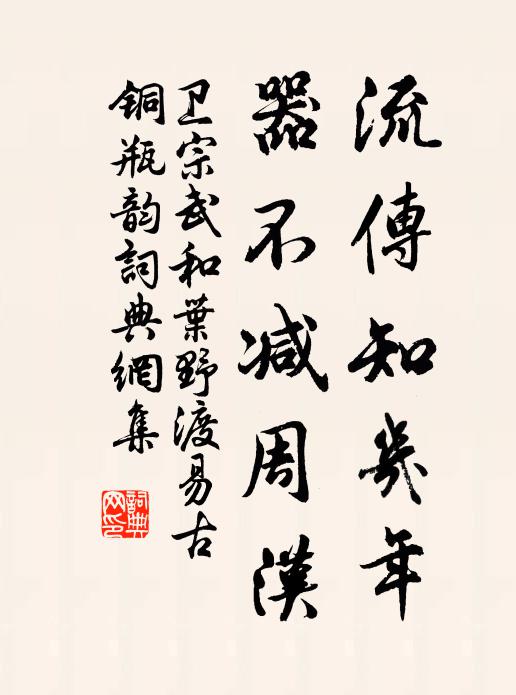 流傳知幾年
器不減周漢
卫宗武和葉野渡易古
銅瓶韵詞典網集
詞典
网印